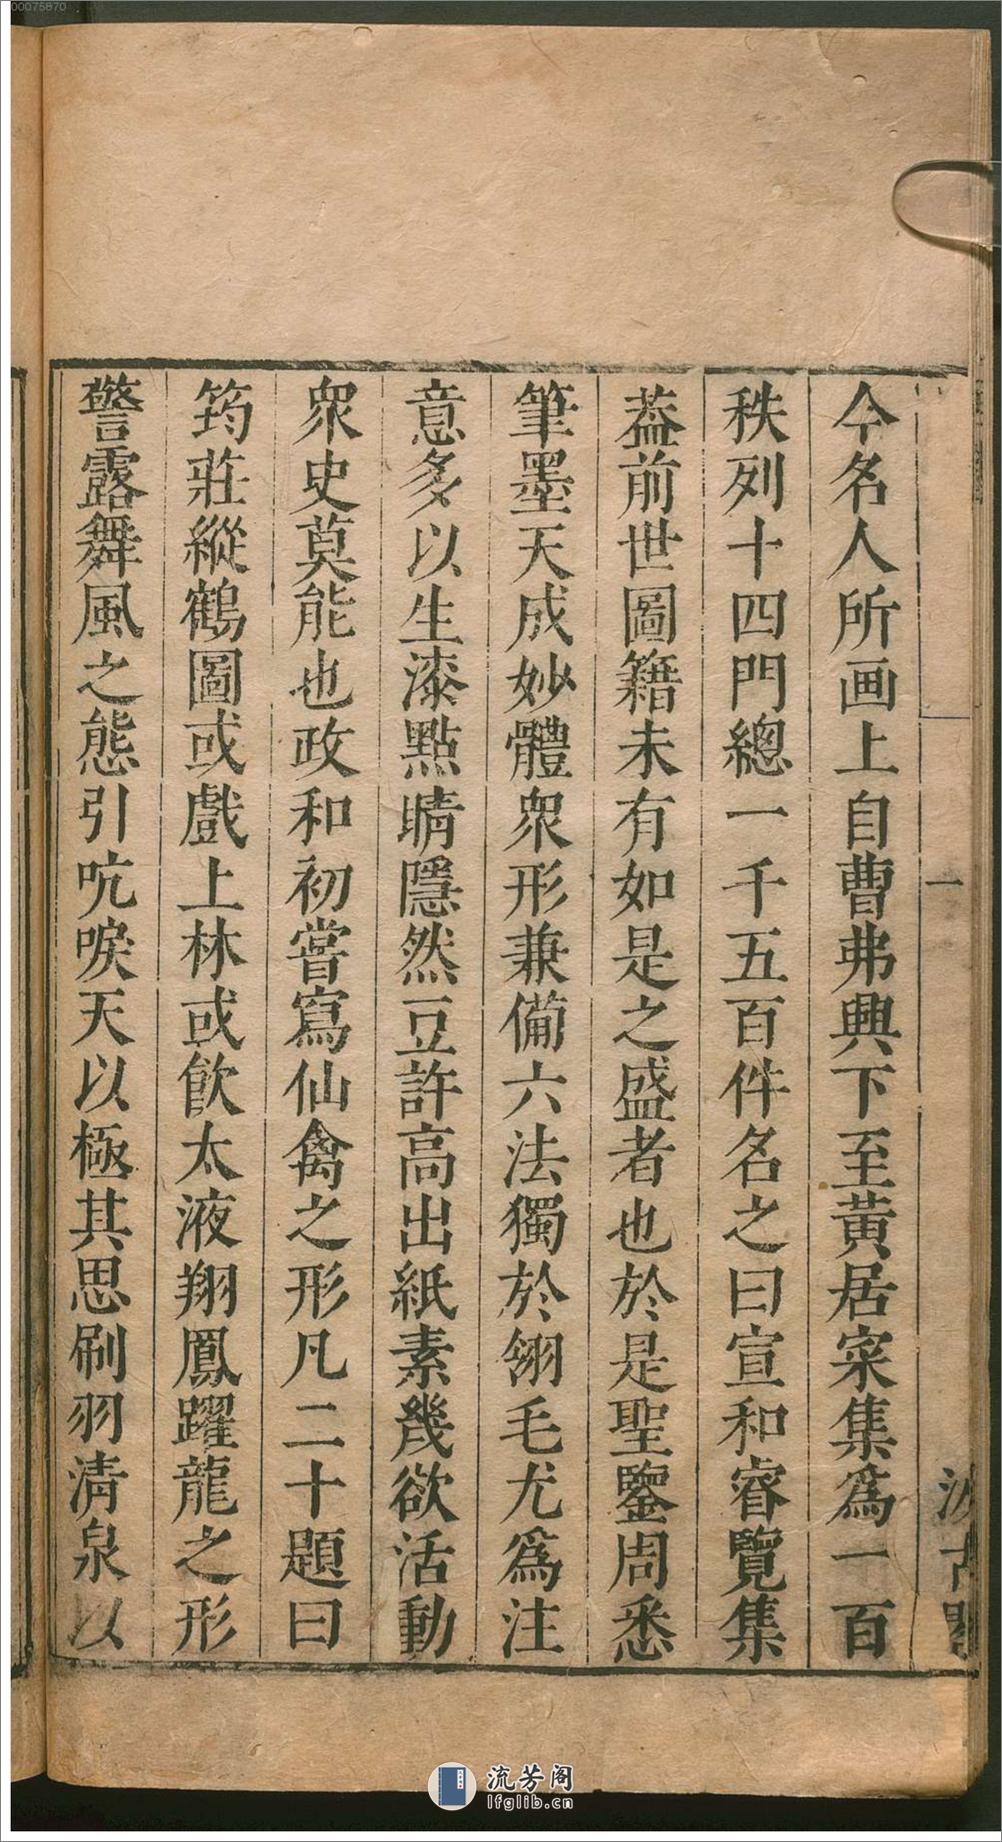 今名人所画上自曹弗興下至黃居寀集爲一百
秩列十四門總一千五百件名之曰宣和睿覽集
葢前世圖籍未有如是之盛者也於是聖鑒周悉
筆墨天成妙體衆形兼備六法獨於翎毛尤爲注
意多以生漆點睛隱然豆許高出紙素幾欲活動
衆史莫能也政和初嘗寫仙禽之形凡二十題曰
筠莊縱鶴圖或戲上林或飲太液翔鳳躍龍之形
警露舞風之態引吭唳天以極其思刷羽清泉以
一
汲古閣
00075870
流芳阁
lfglib.cn